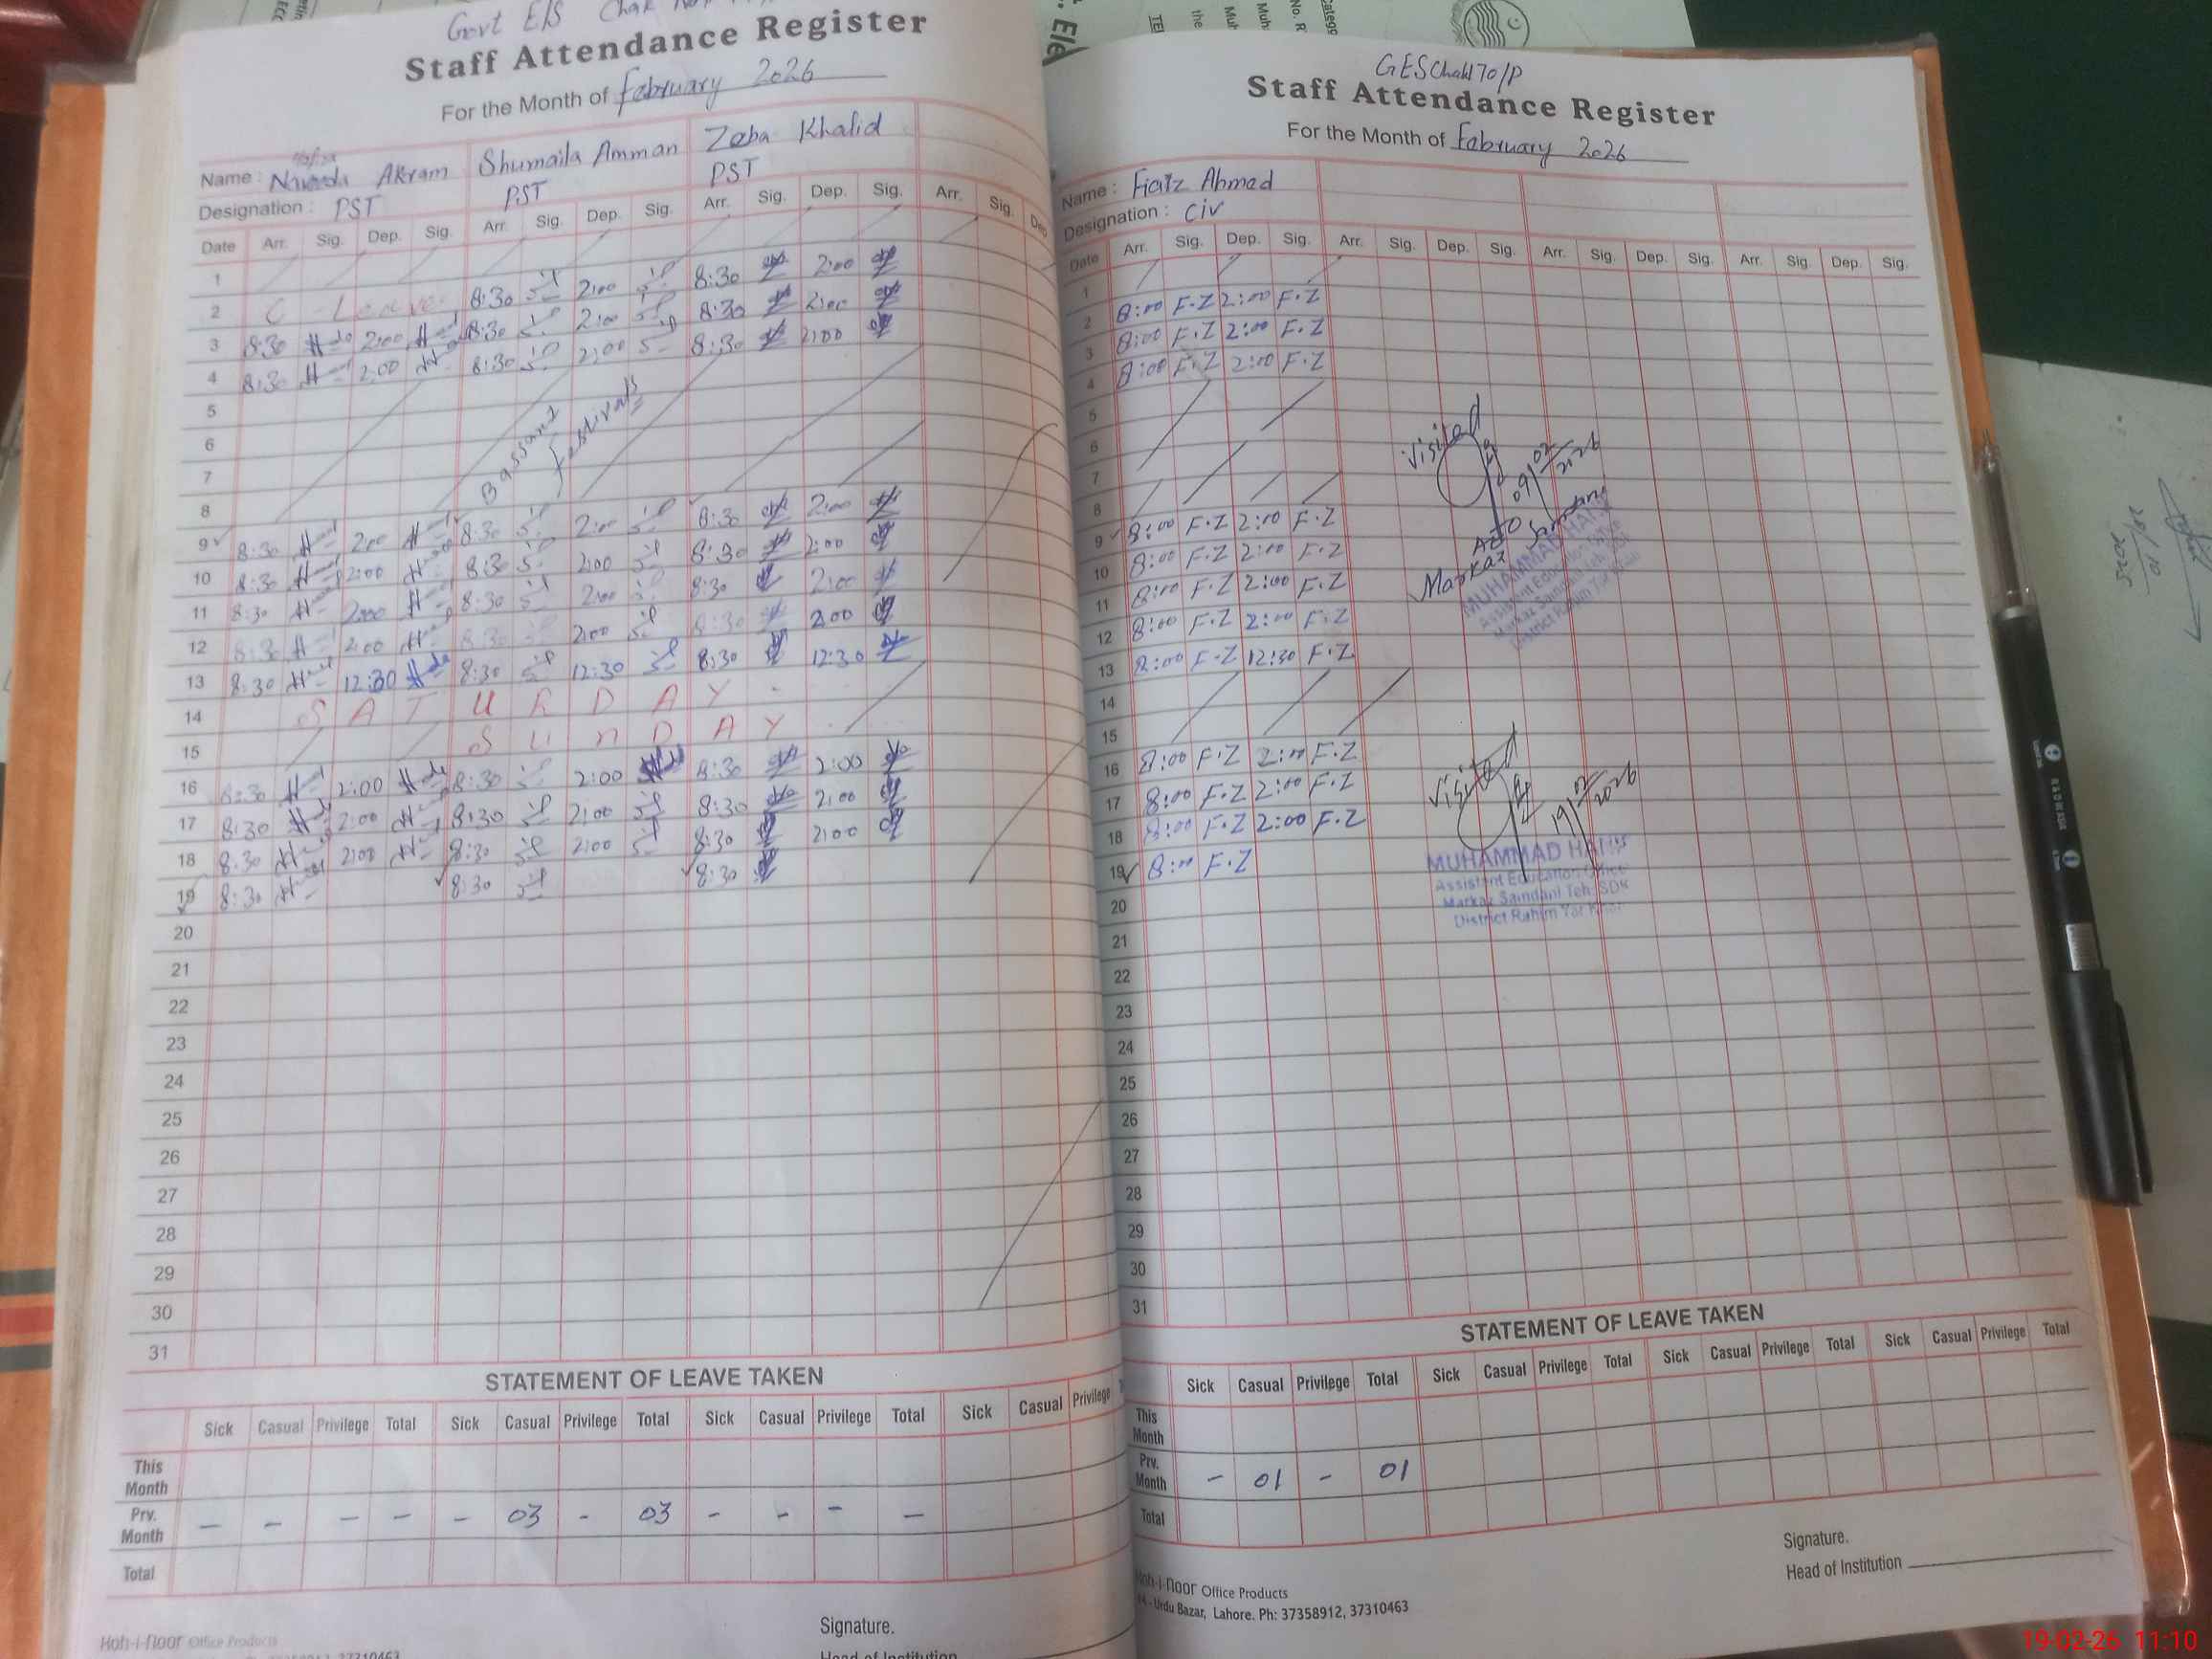 Govt E/S Chak No.
Staff Attendance Register
For the Month of February 2026
Name: Akram Shumaila Amman Zeba Khalid
Designation: PST PST PST
Date Arr. Sig. Dep. Sig. Arr. Sig. Dep. Sig. Arr. Sig. Dep. Sig. Arr. Sig. Dep
1
2 C - Leave 8:30 2:00 8:30 2:00
3 8:30 2:00 8:30 2:00 8:30 2:00
4 8:30 2:00 8:30 2:00 8:30 2:00
5
6
7
Bassant festivals
8
9 8:30 2:00 8:30 2:00 8:30 2:00
10 8:30 2:00 8:30 2:00 8:30 2:00
11 8:30 2:00 8:30 2:00 8:30 2:00
12 8:30 2:00 8:30 2:00 8:30 2:00
13 8:30 12:30 8:30 12:30 8:30 12:30
14 S A T U R D A Y
15 S U n D A Y
16 8:30 2:00 8:30 2:00 8:30 2:00
17 8:30 2:00 8:30 2:00 8:30 2:00
18 8:30 2:00 8:30 2:00 8:30 2:00
19 8:30 8:30 8:30
20
21
22
23
24
25
26
27
28
29
30
31
STATEMENT OF LEAVE TAKEN
Sick Casual Privilege Total Sick Casual Privilege Total Sick Casual Privilege Total Sick Casual Privilege
This Month
Prv. Month - - - - - 03 - 03 - - - -
Total
Koh-i-noor Office Products
Signature.
Head of Institution
GES Chak 70/P
Staff Attendance Register
For the Month of February 2026
Name: Fiaz Ahmed
Designation: Civ
Date Arr. Sig. Dep. Sig. Arr. Sig. Dep. Sig. Arr. Sig. Dep. Sig. Arr. Sig. Dep. Sig.
1
2 8:00 F.Z 2:00 F.Z
3 8:00 F.Z 2:00 F.Z
4 8:00 F.Z 2:00 F.Z
5
6
7
8
9 8:00 F.Z 2:00 F.Z
10 8:00 F.Z 2:00 F.Z
11 8:00 F.Z 2:00 F.Z
12 8:00 F.Z 2:00 F.Z
13 8:00 F.Z 12:30 F.Z
14
15
16 8:00 F.Z 2:00 F.Z
17 8:00 F.Z 2:00 F.Z
18 8:00 F.Z 2:00 F.Z
19 8:00 F.Z
20
21
22
23
24
25
26
27
28
29
30
31
Visited
09/02/2026
AEO
Markaz
MUHAMMAD HANIF
Assistant Education Office
Visited
19/02/2026
MUHAMMAD HANIF
Assistant Education Office
Markaz Saindani Teh. SDK
District Rahim Yar Khan
STATEMENT OF LEAVE TAKEN
Sick Casual Privilege Total Sick Casual Privilege Total Sick Casual Privilege Total Sick Casual Privilege Total
This Month
Prv. Month - 01 - 01
Total
Koh-i-noor Office Products
Urdu Bazar, Lahore. Ph: 37358912, 37310463
Signature.
Head of Institution
19-02-26 11:10